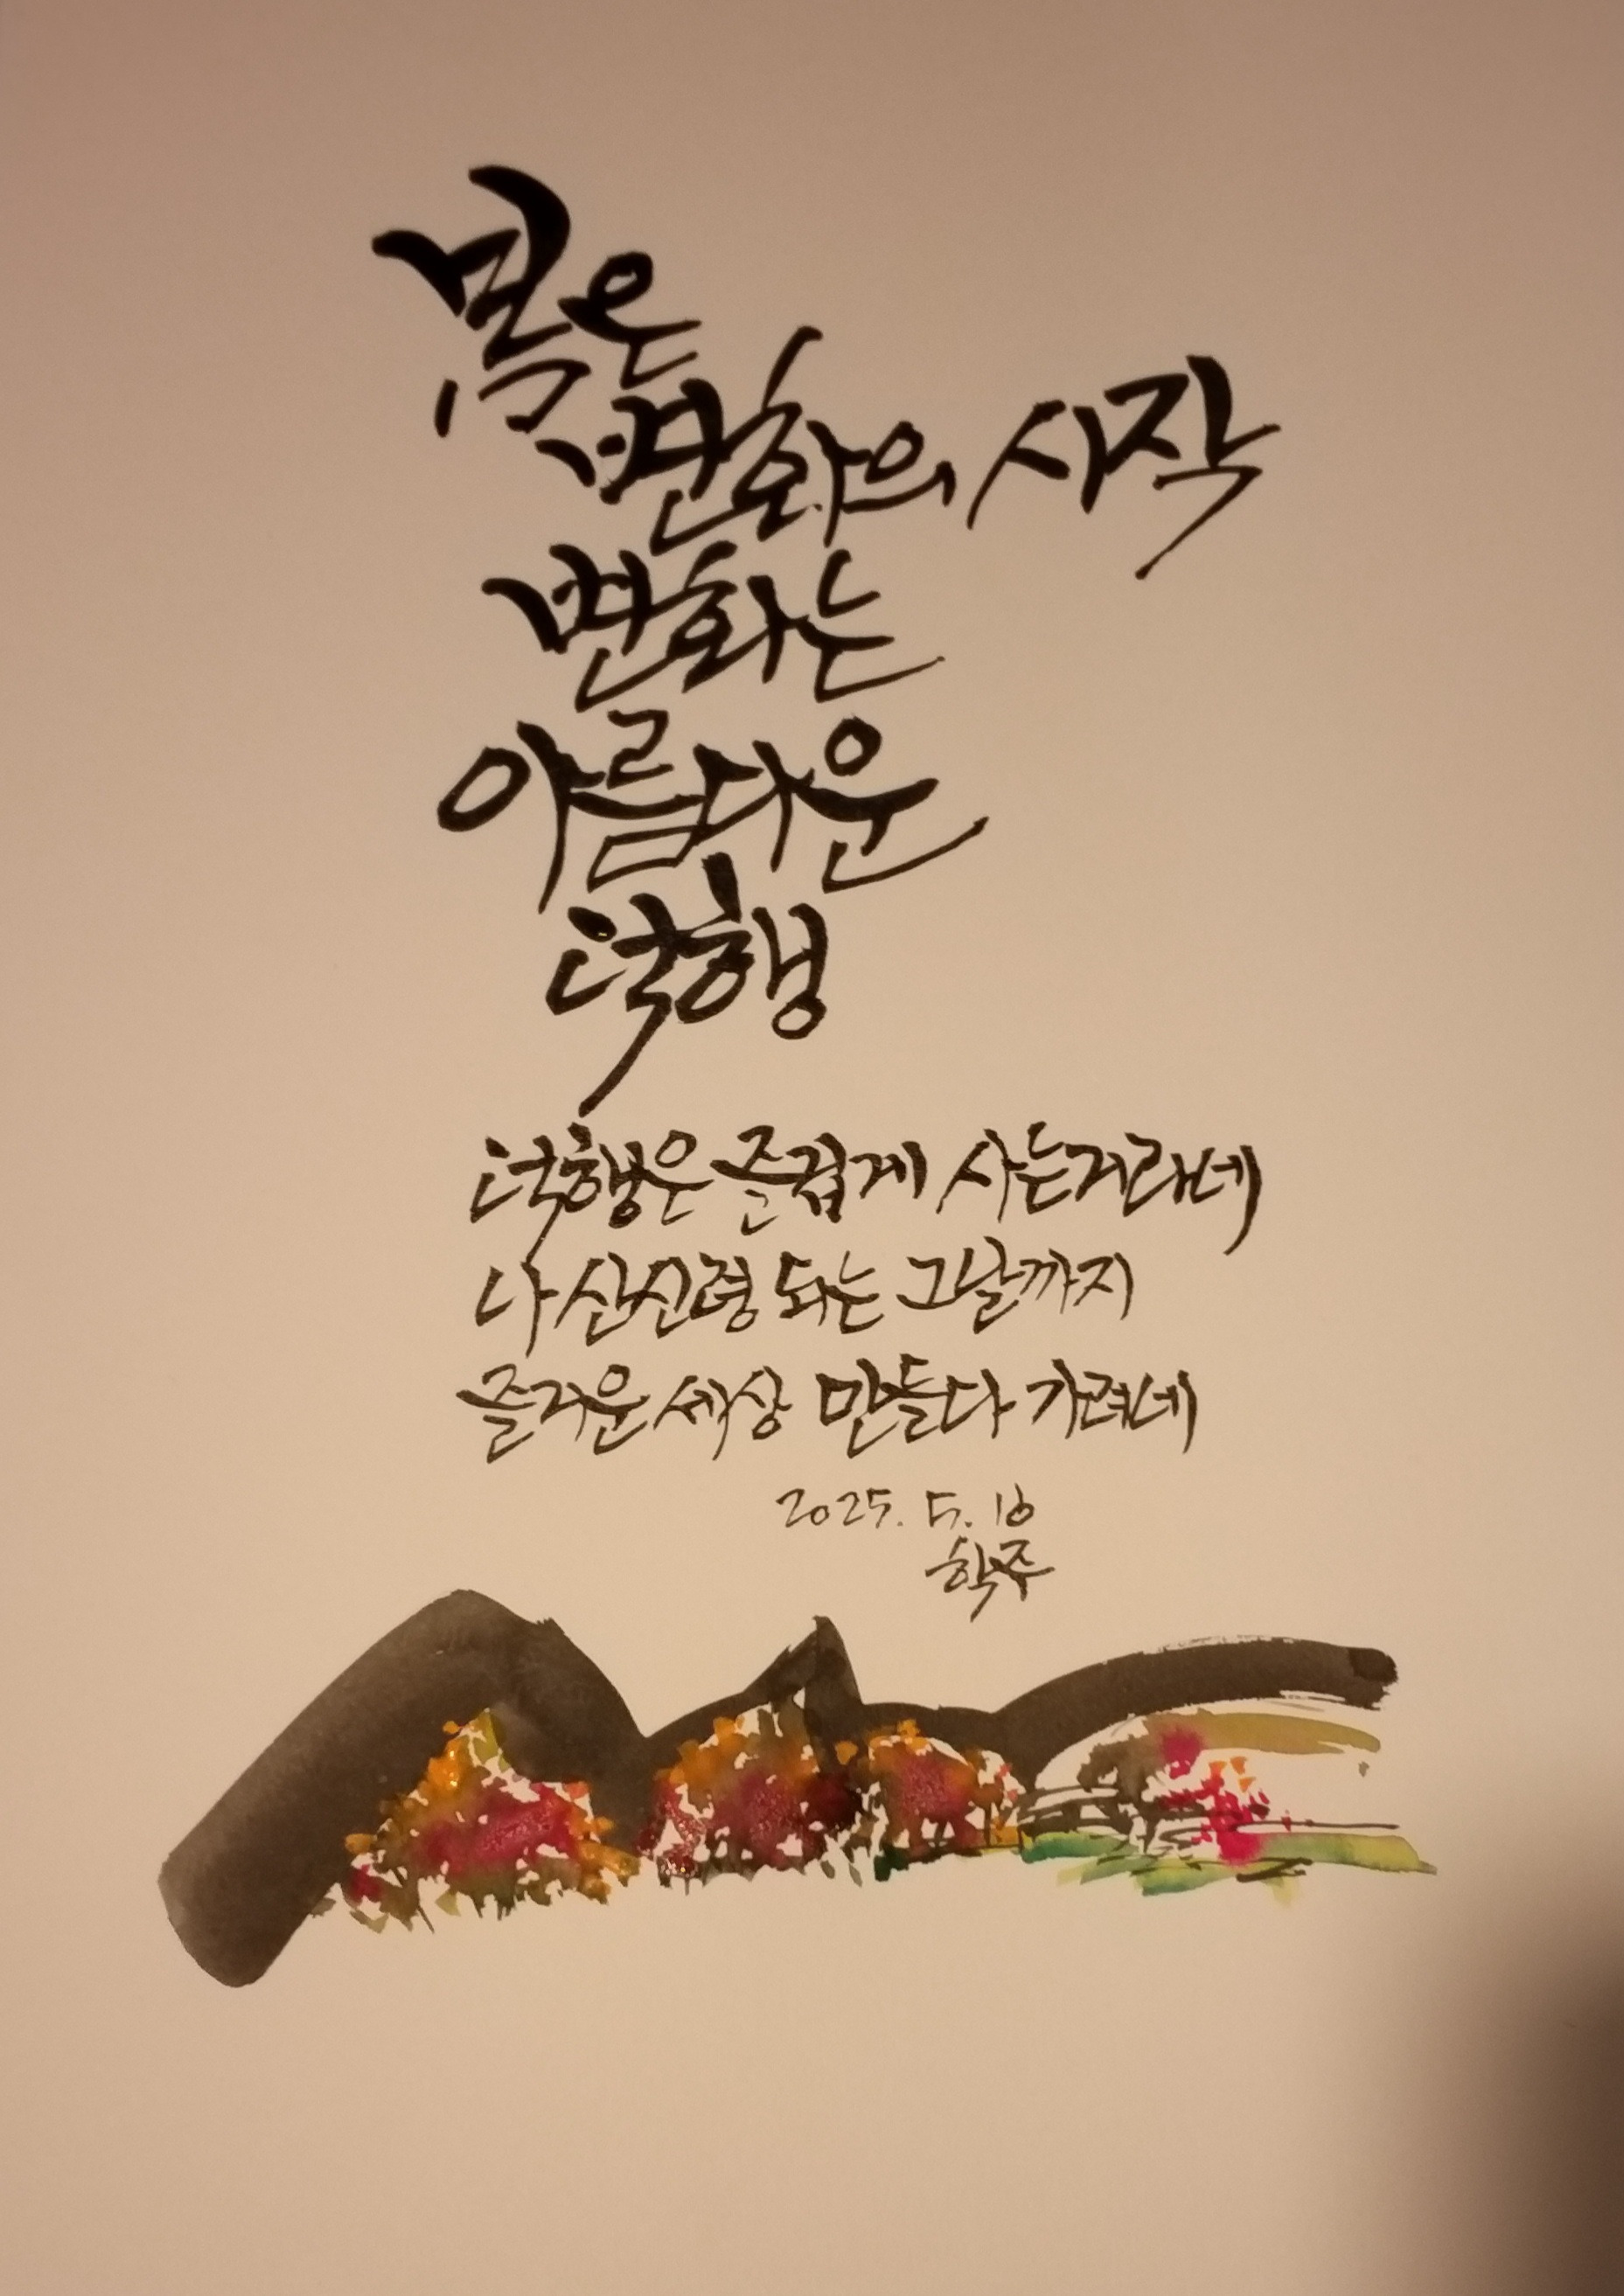 봄은
변화의 시작
변화는
아름다운
덕행
덕행은 즐겁게 사는거라네
나 산신령 되는 그날까지
즐거운 세상 만들다 가려네
2025. 5. 16
학주